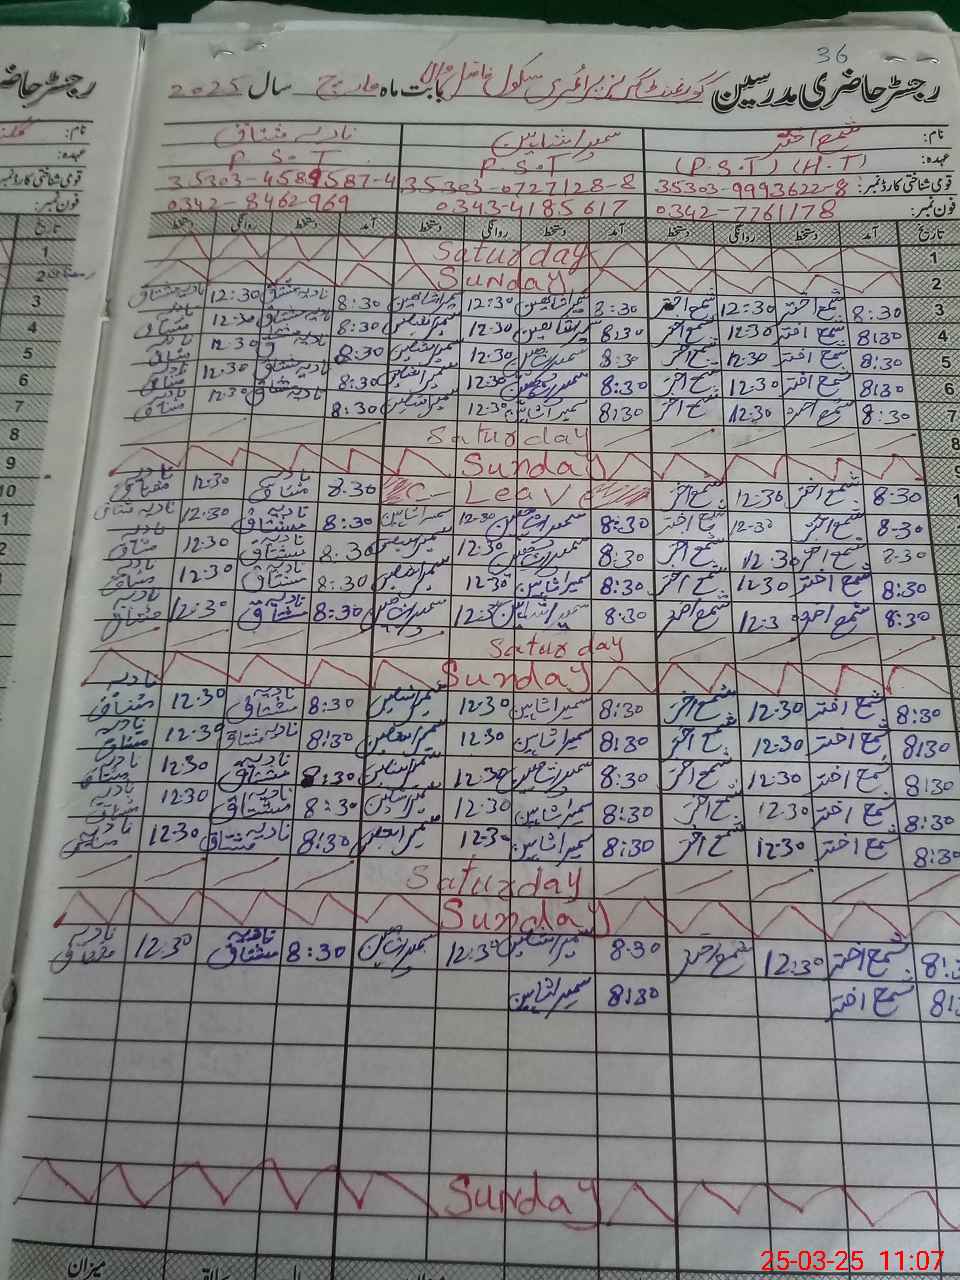 36
رجسٹر حاضری مدرسین گورنمنٹ گرلز پرائمری سکول فاضل بابت ماہ مارچ سال 2025
نام: شمع اختر سمیرا شاہین نادیہ مشتاق
عہدہ: (P.S.T) (H.T) P.S.T P.S.T
قومی شناختی کارڈ نمبر: 35303-9993622-8 35303-0727128-8 35303-4589587-4
فون نمبر: 0342-7761178 0343-4185617 0342-8462969
تاریخ آمد دستخط روانگی دستخط آمد دستخط روانگی دستخط آمد دستخط روانگی دستخط تاریخ
1 Saturday 1
2 Sunday 2
3 8:30 شمع اختر 12:30 شمع اختر 8:30 سمیرا شاہین 12:30 سمیرا شاہین 8:30 نادیہ مشتاق 12:30 نادیہ مشتاق 3
4 8:30 شمع اختر 12:30 شمع اختر 8:30 سمیرا شاہین 12:30 سمیرا شاہین 8:30 نادیہ مشتاق 12:30 نادیہ مشتاق 4
5 8:30 شمع اختر 12:30 شمع اختر 8:30 سمیرا شاہین 12:30 سمیرا شاہین 8:30 نادیہ مشتاق 12:30 نادیہ مشتاق 5
6 8:30 شمع اختر 12:30 شمع اختر 8:30 سمیرا شاہین 12:30 سمیرا شاہین 8:30 نادیہ مشتاق 12:30 نادیہ مشتاق 6
7 8:30 شمع اختر 12:30 شمع اختر 8:30 سمیرا شاہین 12:30 سمیرا شاہین 8:30 نادیہ مشتاق 12:30 نادیہ مشتاق 7
8 Saturday 8
9 Sunday 9
8:30 شمع اختر 12:30 شمع اختر C-Leave 8:30 نادیہ مشتاق 12:30 نادیہ مشتاق 10
8:30 شمع اختر 12:30 شمع اختر 8:30 سمیرا شاہین 12:30 سمیرا شاہین 8:30 نادیہ مشتاق 12:30 نادیہ مشتاق
8:30 شمع اختر 12:30 شمع اختر 8:30 سمیرا شاہین 12:30 سمیرا شاہین 8:30 نادیہ مشتاق 12:30 نادیہ مشتاق
8:30 شمع اختر 12:30 شمع اختر 8:30 سمیرا شاہین 12:30 سمیرا شاہین 8:30 نادیہ مشتاق 12:30 نادیہ مشتاق
8:30 شمع اختر 12:30 شمع اختر 8:30 سمیرا شاہین 12:30 سمیرا شاہین 8:30 نادیہ مشتاق 12:30 نادیہ مشتاق
Saturday
Sunday
8:30 شمع اختر 12:30 شمع اختر 8:30 سمیرا شاہین 12:30 سمیرا شاہین 8:30 نادیہ مشتاق 12:30 نادیہ مشتاق
8:30 شمع اختر 12:30 شمع اختر 8:30 سمیرا شاہین 12:30 سمیرا شاہین 8:30 نادیہ مشتاق 12:30 نادیہ مشتاق
8:30 شمع اختر 12:30 شمع اختر 8:30 سمیرا شاہین 12:30 سمیرا شاہین 8:30 نادیہ مشتاق 12:30 نادیہ مشتاق
8:30 شمع اختر 12:30 شمع اختر 8:30 سمیرا شاہین 12:30 سمیرا شاہین 8:30 نادیہ مشتاق 12:30 نادیہ مشتاق
8:30 شمع اختر 12:30 شمع اختر 8:30 سمیرا شاہین 12:30 سمیرا شاہین 8:30 نادیہ مشتاق 12:30 نادیہ مشتاق
Saturday
Sunday
8:3 شمع اختر 12:30 شمع اختر 8:30 سمیرا شاہین 12:30 سمیرا شاہین 8:30 نادیہ مشتاق 12:30 نادیہ مشتاق
8:3 شمع اختر 8:30 سمیرا شاہین
Sunday
میزان
25-03-25 11:07